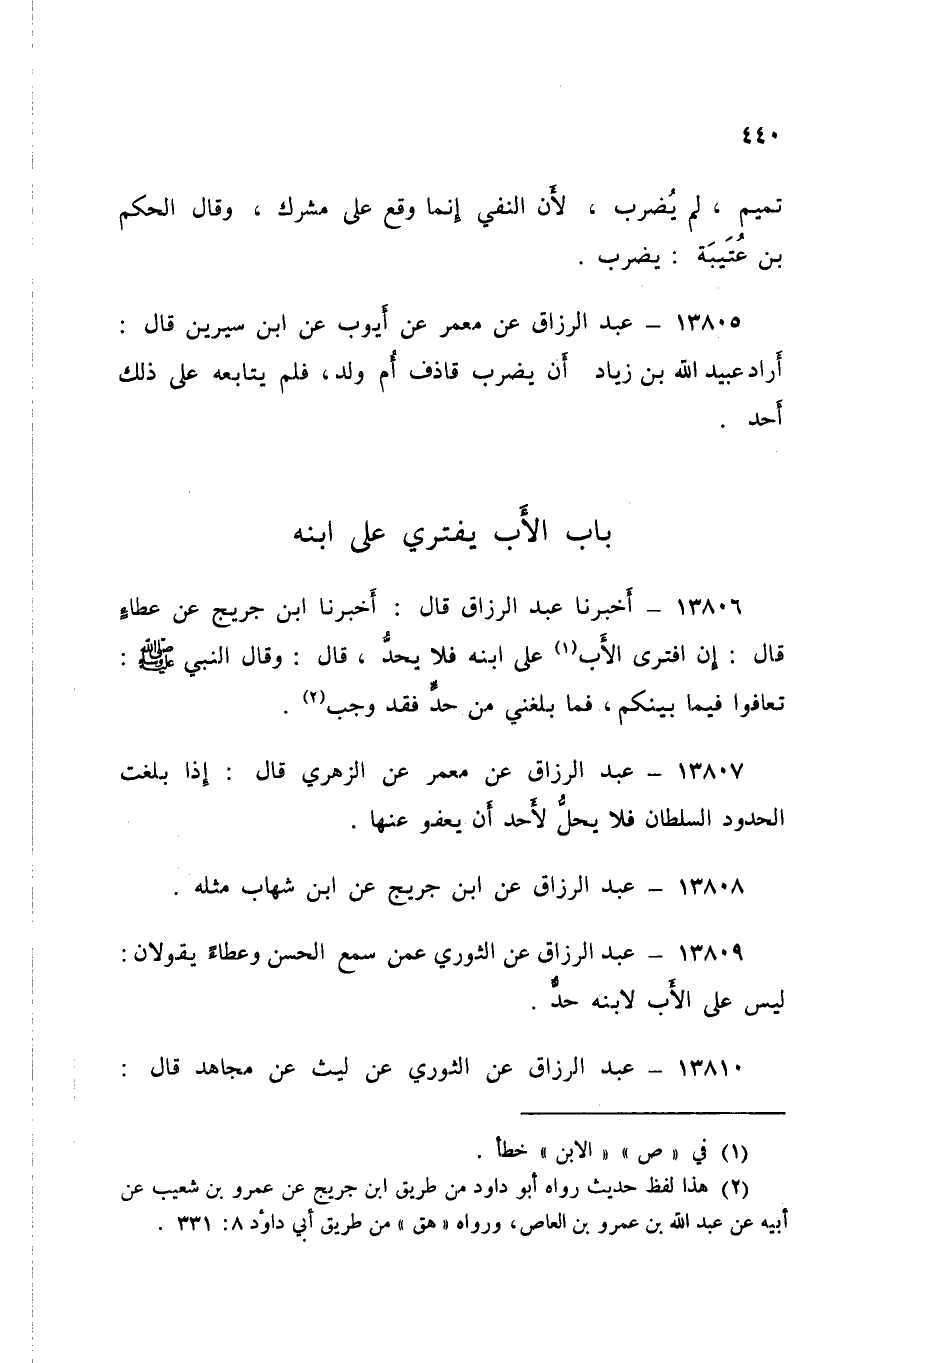 ٤٤٠
تميم ، لم يُضرب ، لأَن النفي إنما وقع على مشرك ، وقال الحكم
بن عُتَيبَة : يضرب .
١٣٨٠٥ – عبد الرزاق عن معمر عن أَيوب عن ابن سيرين قال :
أَراد عبيد الله بن زياد أَن يضرب قاذف أُم ولد ، فلم يتابعه على ذلك
أَحد .
باب الأَب يفتري على ابنه
١٣٨٠٦ – أَخبرنا عبد الرزاق قال : أَخبرنا ابن جريج عن عطاءٍ
قال : إن افترى الأَب(١) على ابنه فلا يحدُّ ، قال : وقال النبي ﷺ :
تعافوا فيما بينكم ، فما بلغني من حدٍّ فقد وجب(٢) .
١٣٨٠٧ – عبد الرزاق عن معمر عن الزهري قال : إذا بلغت
الحدود السلطان فلا يحلُّ لأَحد أَن يعفو عنها .
١٣٨٠٨ – عبد الرزاق عن ابن جريج عن ابن شهاب مثله .
١٣٨٠٩ – عبد الرزاق عن الثوري عمن سمع الحسن وعطاءً يقولان :
ليس على الأَب لابنه حدٌّ .
١٣٨١٠ – عبد الرزاق عن الثوري عن ليث عن مجاهد قال :
(١) في « ص » « الابن » خطأ .
(٢) هذا لفظ حديث رواه أبو داود من طريق ابن جريج عن عمرو بن شعيب عن
أبيه عن عبد الله بن عمرو بن العاص ، ورواه « هق » من طريق أبي داؤد ٨: ٣٣١ .